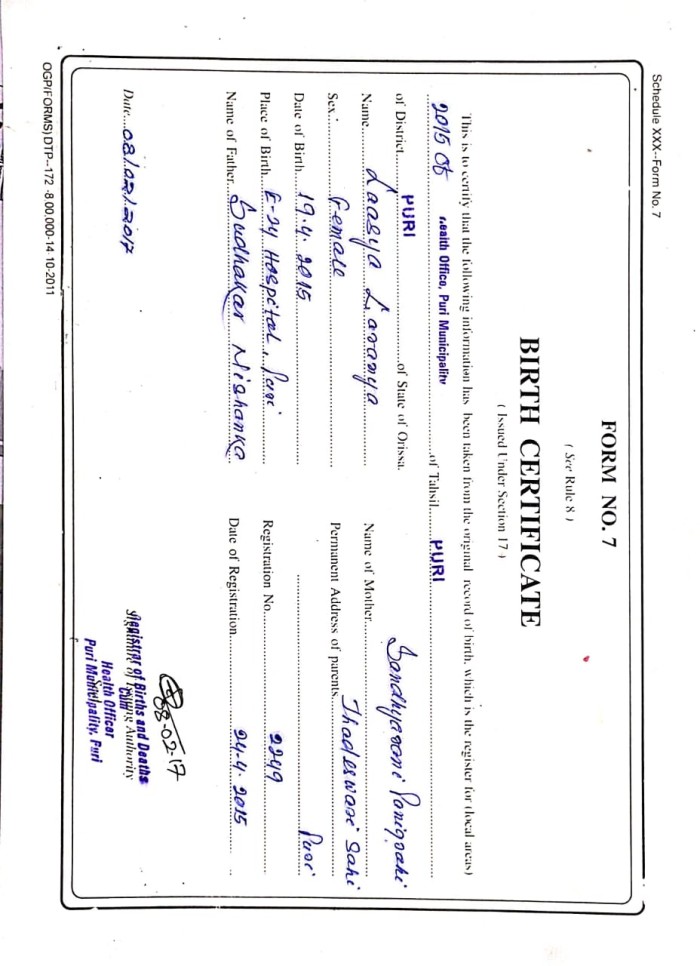 Schedule XXX--Form No. 7
FORM NO. 7
( See Rule 8 )
BIRTH CERTIFICATE
( Issued Under Section 17 )
This is to certify that the following information has been taken from the original record of birth, which is the register for (local areas)
2015 of Health Office, Puri Municipality of Tahsil PURI
of District PURI of State of Orissa.
Name Laasya Lavanya
Name of Mother Sandhyarani Panigrahi
Sex Female
Permanent Address of parents Jhadeswari Sahi
Date of Birth 19.4.2015
Puri
Place of Birth E-24 Hospital, Puri
Registration No. 2249
Name of Father Sudhakar Mishanka
Date of Registration 24.4.2015
08-02-17
Date 08/02/2017
Registrar of Births and Deaths
Signature of Issuing Authority
Cum
Health Officer
Seal
Puri Municipality, Puri
OGP(FORMS) DTP--172 -8,00,000-14-10-2011